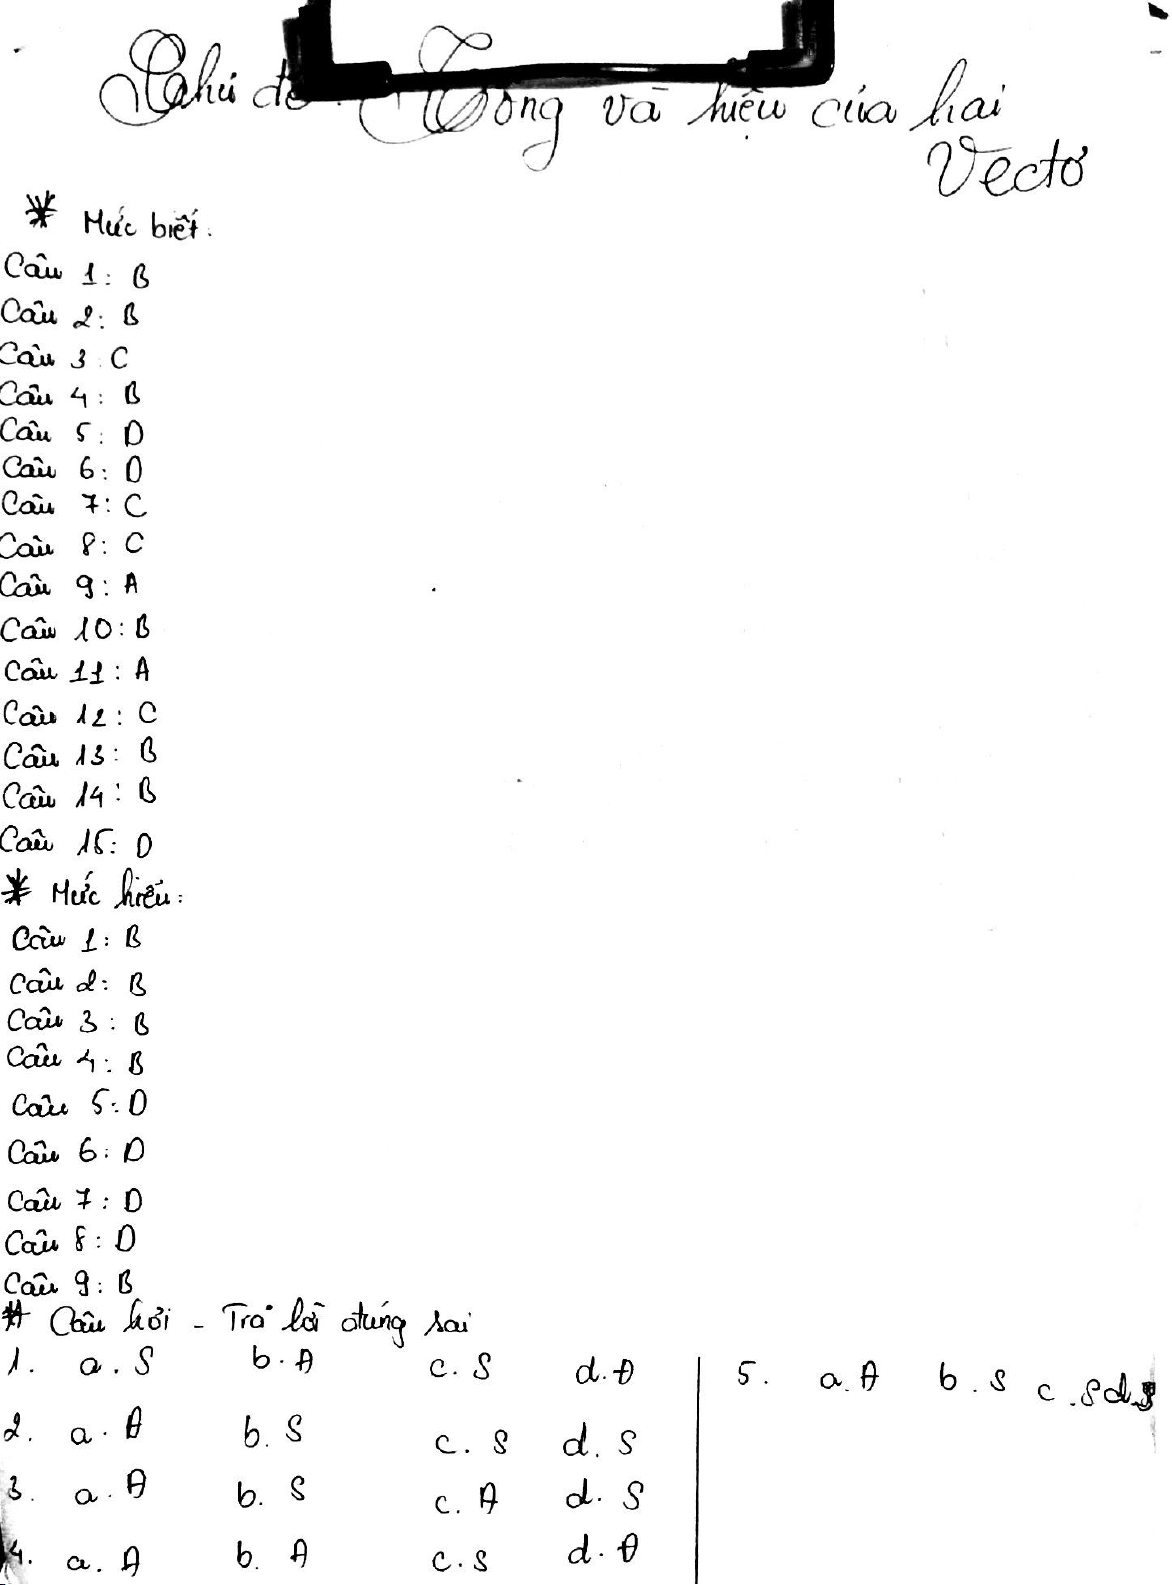 Chủ đề: Tổng và hiệu của hai
Vectơ
* Mức biết:
Câu 1: B
Câu 2: B
Câu 3: C
Câu 4: B
Câu 5: D
Câu 6: D
Câu 7: C
Câu 8: C
Câu 9: A
Câu 10: B
Câu 11: A
Câu 12: C
Câu 13: B
Câu 14: B
Câu 15: D
* Mức hiểu:
Câu 1: B
Câu 2: B
Câu 3: B
Câu 4: B
Câu 5: D
Câu 6: D
Câu 7: D
Câu 8: D
Câu 9: B
# Câu hỏi - Trả lời đúng sai
1. a. S b. Đ c. S d. Đ
2. a. Đ b. S c. S d. S
3. a. Đ b. S c. Đ d. S
4. a. Đ b. Đ c. S d. Đ
5. a. Đ b. S c. S d. S